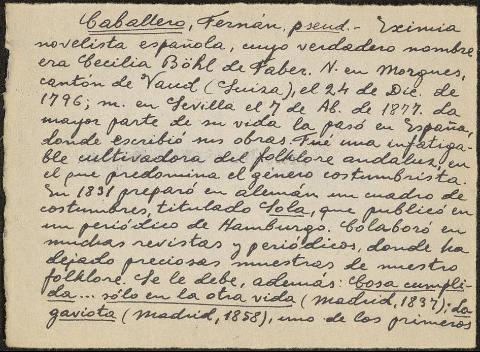 Caballero, Fernán, pseud.- Eximia
novelista española, cuyo verdadero nombre
era Cecilia Böhl de Faber. N. en Morgues,
cantón de Vaud (Suiza), el 24 de Dic. de
1796; m. en Sevilla el 7 de Ab. de 1877. La
mayor parte de su vida la pasó en España,
donde escribió sus obras. Fué una infatiga-
ble cultivadora del folklore andaluz, en
el que predomina el género costumbrista.
En 1831 preparó en alemán un cuadro de
costumbres, titulado Sola, que publicó en
un periódico de Hamburgo. Colaboró en
muchas revistas y periódicos, donde ha
dejado preciosas muestras de nuestro
folklore. Se le debe, además: Cosa cumpli-
da... sólo en la otra vida (Madrid, 1837); La
gaviota (Madrid, 1858), uno de los primeros